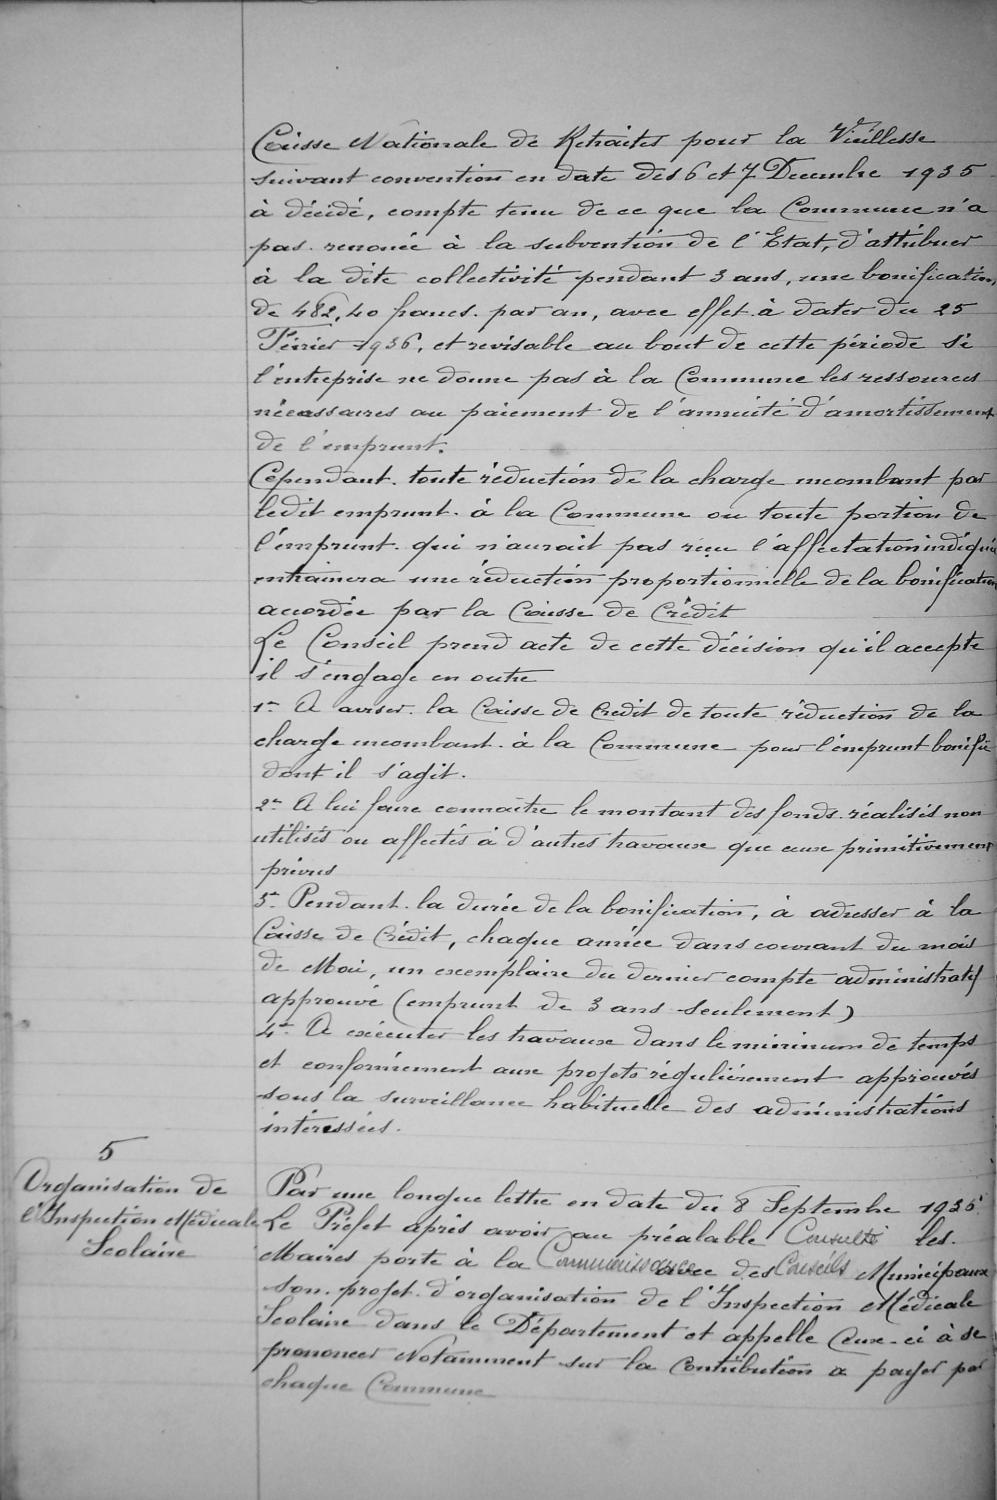 Caisse Nationale de Retraites pour la Vieillesse
suivant convention en date des 6 et 7 Decembre 1935
à décidé, compte tenu de ce que la Commune n'a
pas renoncé à la subvention de l'Etat, d'attribuer
à la dite collectivité pendant 3 ans, une bonification
de 482,40 francs par an, avec effet à dater du 25
Février 1936, et revisable au bout de cette période si
l'entreprise ne donne pas à la Commune les ressources
nécessaires au paiement de l'annuité d'amortissement
de l'emprunt.
Cependant toute réduction de la charge incombant par
ledit emprunt à la Commune ou toute portion de
l'emprunt qui n'aurait pas reçu l'affectation indiquée
entrainera une réduction proportionnelle de la bonification
accordée par la Caisse de Crédit
Le Conseil prend acte de cette décision qu'il accepte
il s'engage en outre
1º A aviser la Caisse de Credit de toute réduction de la
charge incombant à la Commune pour l'emprunt bonifié
dont il s'agit.
2º A lui faire connaître le montant des fonds réalisés non
utilisés ou affectés à d'autres travaux que ceux primitivement
prévus
3º Pendant la durée de la bonification, à adresser à la
Caisse de Crédit, chaque année dans courant du mois
de Mai, un exemplaire du dernier compte administratif
approuvé (emprunt de 3 ans seulement)
4º A exécuter les travaux dans le minimum de temps
et conformement aux projets régulièrement approuvés
sous la surveillance habituelle des administrations
intéressées.
5
Organisation de
l'Inspection Médicale
Scolaire
Par une longue lettre en date du 8 Septembre 1936
Le Préfet après avoir au préalable Consulté les
Maires porte à la Connaissance des Conseils Municipaux
son projet d'organisation de l'Inspection Médicale
Scolaire dans le Département et appelle Ceux-ci à se
prononcer Notamment sur la Contribution a payer par
chaque Commune